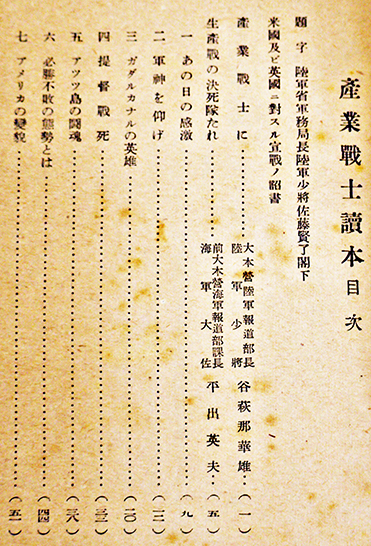 產業戰士讀本 目次
題字 陸軍省軍務局長陸軍少將佐藤賢了閣下
米國及ビ英國ニ對スル宣戰ノ詔書
產業戰士に………… 大本營陸軍報道部長 陸軍少將 谷萩那華雄…(一)
生產戰の決死隊たれ………… 前大本營海軍報道部課長 海軍大佐 平出英夫…(五)
一 あの日の感激…………(九)
二 軍神を仰げ…………(一二)
三 ガダルカナルの英雄…………(二〇)
四 提督戰死…………(三二)
五 アツツ島の鬪魂…………(三八)
六 必勝不敗の態勢とは…………(四四)
七 アメリカの變貌…………(五一)